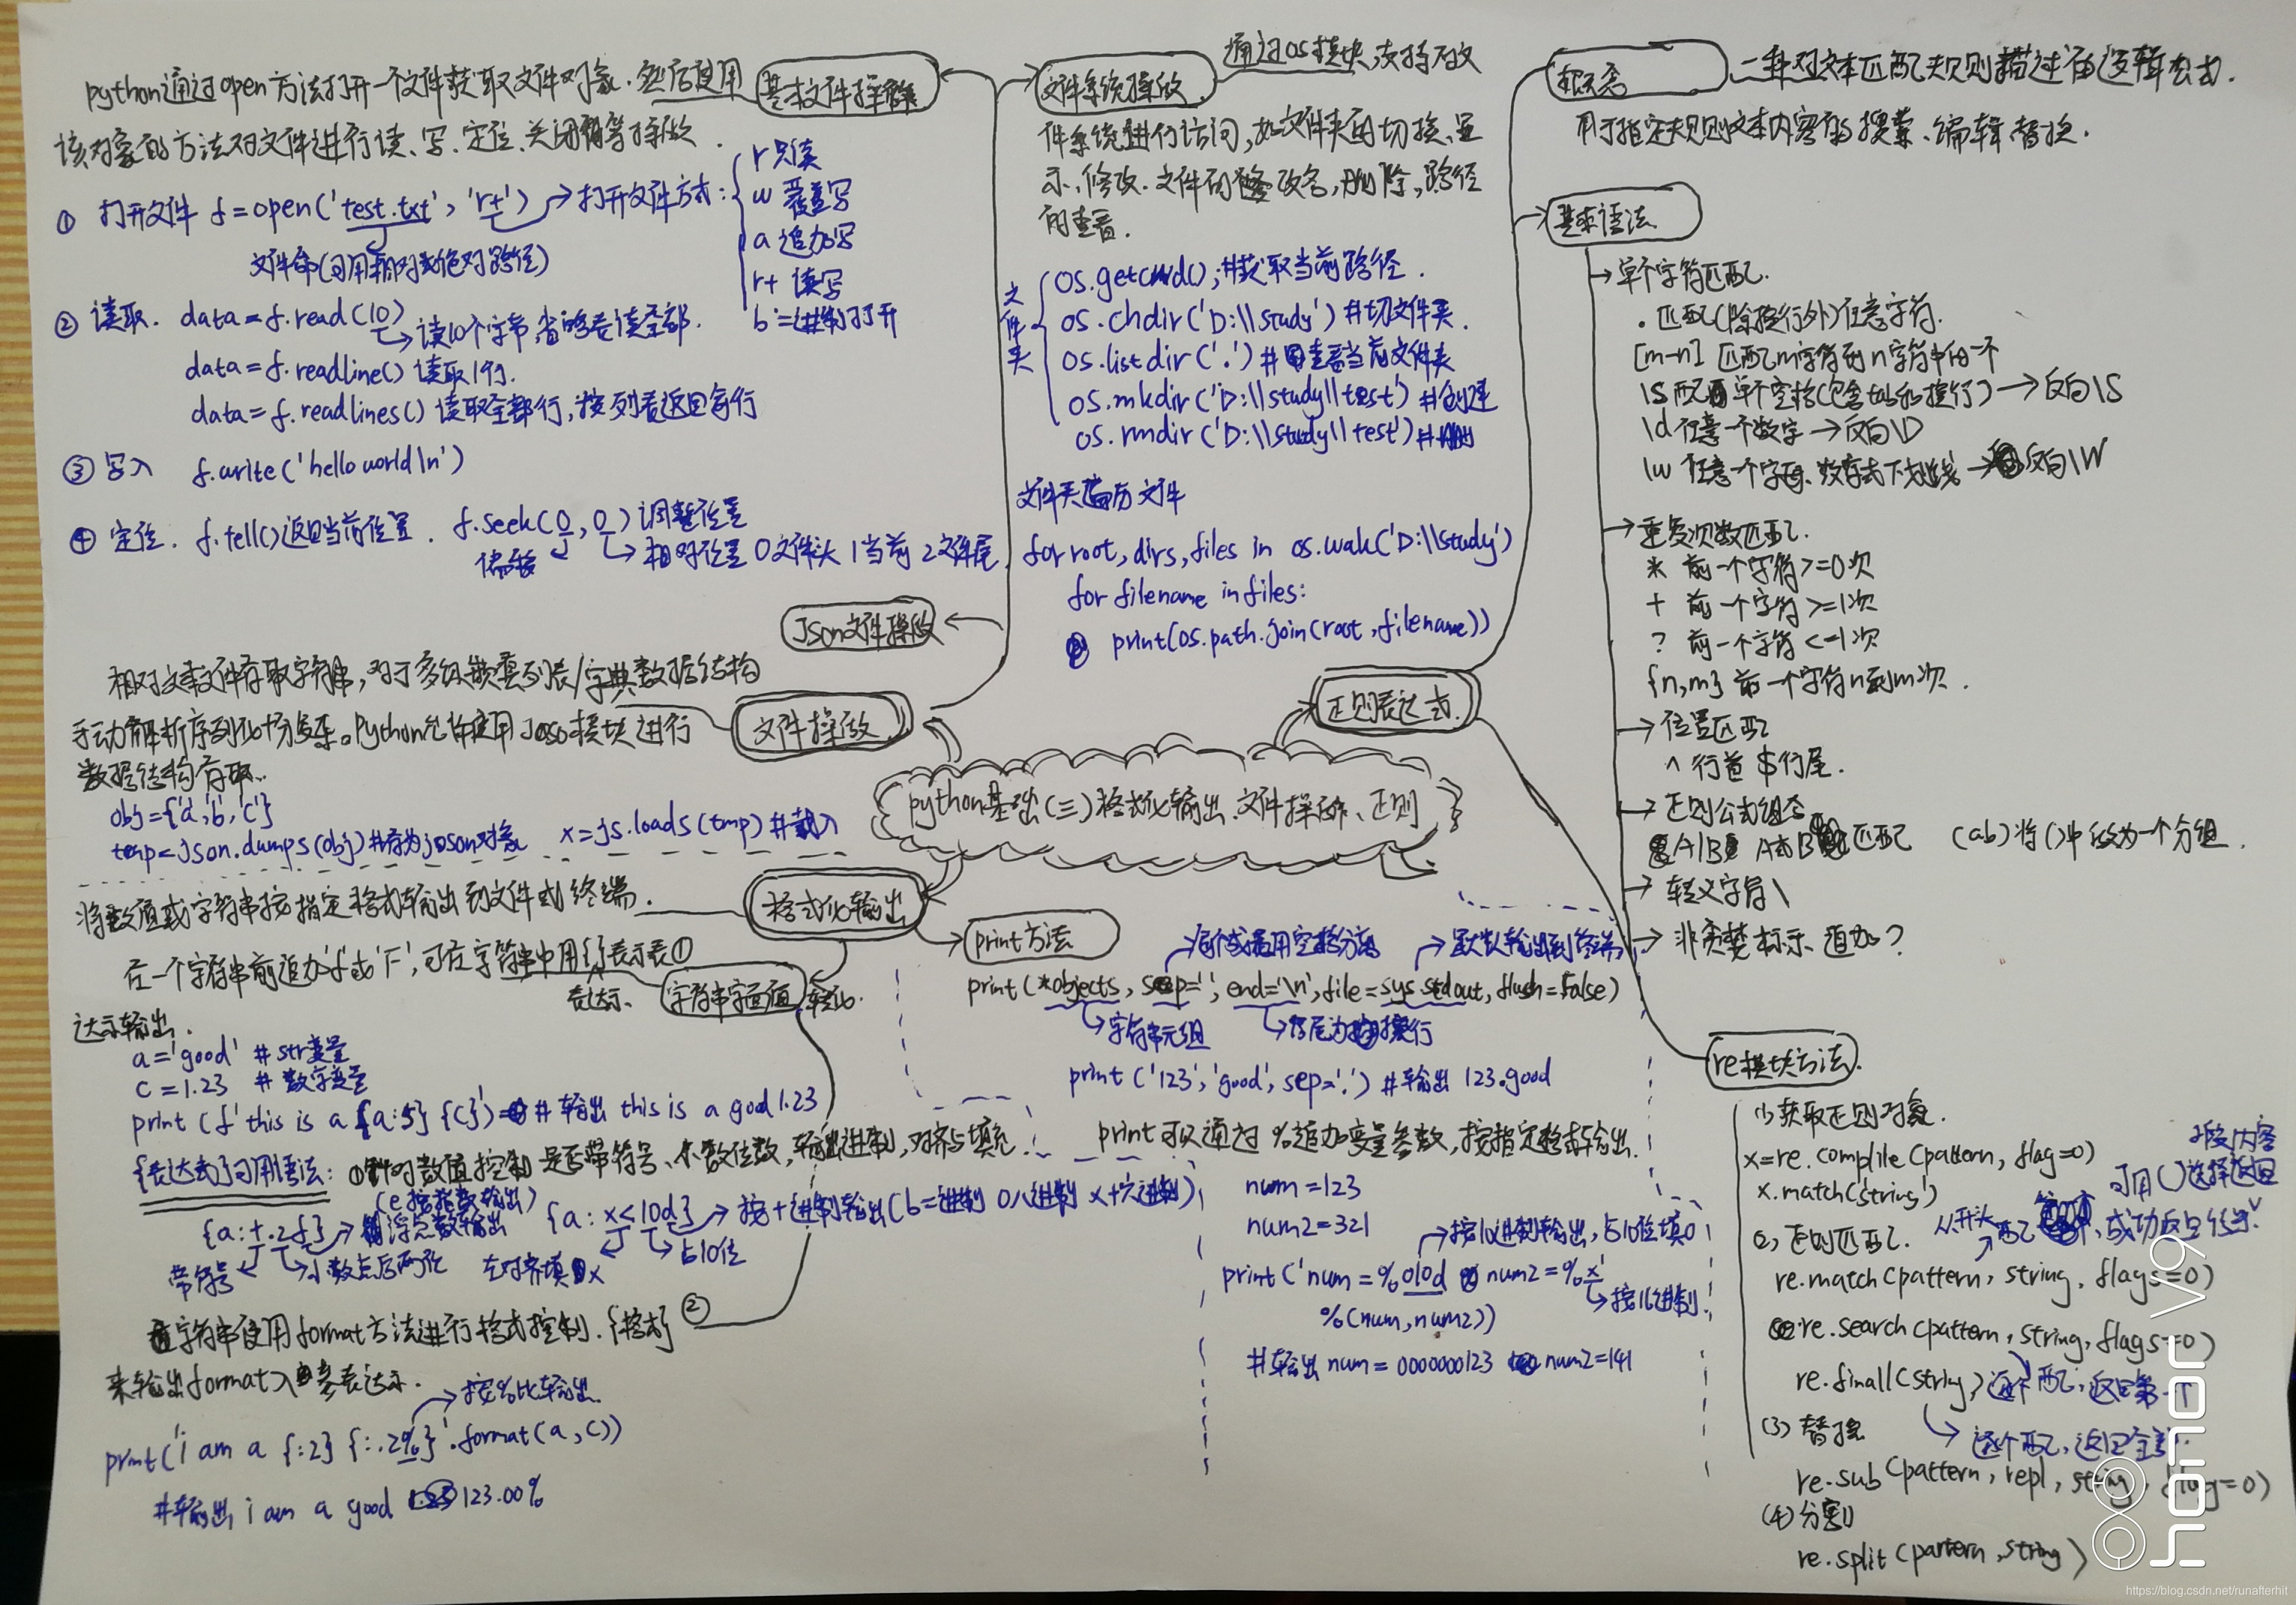 python基础(三)格式化输出、文件操作、正则
文件操做
基本文件操做
python通过open方法打开一个文件获取文件对象.然后使用
该对象的方法对文件进行读、写、定位、关闭等操做.
① 打开文件 f=open('test.txt', 'r+') → 打开文件方式:
r 只读
w 覆盖写
a 追加写
r+ 读写
b 二进制打开
文件命(可用相对或绝对路径)
② 读取. data=f.read(10)
读10个字节,省略看读全部.
data=f.readline() 读取1行.
data=f.readlines() 读取全部行,按列表返回每行
③ 写入 f.write('hello world\n')
④ 定位. f.tell()返回当前位置. f.seek(0, 0)调整位置
偏移 相对位置 0文件头 1当前 2文件尾.
Json文件操做
相对文本文件存取字符串,对于多组嵌套列表/字典数据结构
手动解析序列化十分复杂。Python允许使用Json模块进行
数据结构存取..
obj={'a','b','c'}
temp=Json.dumps(obj)#存为json对象 x=js.loads(tmp)#载入
文件系统操做
通过os模块,支持对文
件系统进行访问,如文件夹的切换、显
示、修改.文件的改名,删除,路径
的查看.
文件夹
os.getcwd();#获取当前路径.
os.chdir('D:\\study')#切文件夹.
os.listdir('.')#查看当前文件夹
os.mkdir('D:\\study\\test')#创建
os.rmdir('D:\\study\\test')#
文件夹遍历文件
for root, dirs, files in os.walk('D:\\study')
for filename in files:
print(os.path.join(root, filename))
正则表达式
概念
一种对文本匹配规则描述的逻辑公式.
用于指定规则文本内容的搜索、编辑、替换.
基本语法
单个字符匹配.
. 匹配(除换行外)任意字符.
[m-n] 匹配m字符到n字符中的一个
\s 匹配单个空格(包含tab和换行) → 反向\S
\d 任意一个数字 → 反向\D
\w 任意一个字母、数字或下划线 → 反向\W
重复次数匹配.
* 前一个字符>=0次
+ 前一个字符>=1次
? 前一个字符<=1次
{n,m} 前一个字符n到m次.
位置匹配
^ 行首 $行尾.
正则公式组合
A|B A或B匹配 (ab)将()中做为一个分组.
转义字符\
非贪婪标示、追加?
re模块方法.
(1)获取正则对象.
x=re.compile(pattern, flag=0)
x.match('string')
(2)正则匹配.
从开头匹配,成功返回
可用()选择返回
re.match(pattern, string, flags=0)
re.search(pattern, string, flags=0)
逐个匹配,返回第一个
re.finall(string)
逐个匹配,返回全部.
(3)替换
re.sub(pattern, repl, string, flag=0)
(4)分割
re.split(partern, string)
格式化输出
将数值或字符串按指定格式输出到文件或终端.
字符串字面值
①
在一个字符串前追加'f'或'F',可在字符串中用{}表示表
达示输出.
表达示.
a='good' # str变量
c=1.23 # 数字变量
print(f'this is a {a:5} {c}') # 输出 this is a good 1.23
{表达式}可用语法: ①针对数值控制 是否带符号、小数位数,输出进制,对齐与填充.
(e按指数输出)
{a:+.2f} → 浮点数输出 {a:x<10d} → 按十进制输出(b二进制 o八进制 x十六进制)
带符号 小数点后两位 左对齐填x 占10位
②
在字符串使用format方法进行格式控制.{格式}
来输出format入参表达示.
按%比输出.
print('i am a {:2} {:.2%}'.format(a,c))
#输出 i am a good 123.00%
print方法
每个成员用空格分离 默认输出到终端
print(*objects, sep=' ', end='\n', file=sys.stdout, flush=False)
字符串元组 结尾为换行
print('123', 'good', sep='.') #输出 123.good
print可以通过 %追加变量参数,按指定格式输出.
num=123
num2=321
按10进制输出,占10位填0
print('num=%010d num2=%x'
按16进制.
%(num,num2))
#输出 num=0000000123 num2=141
honor V9
https://blog.csdn.net/runafterhit